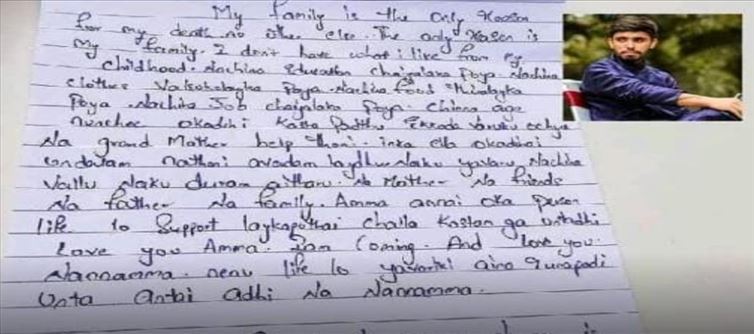 My family is the only Reason
for my death no other else. The only Reason is
My family. I don't have what i live from my
childhood. Nachina Education chaiyalaka Poya. Nachina
clothes Vaisokolayka Poya. Nachina food Thinalayka
Poya. Nachina Job chaiyalaka Poya. Chinna age
nunchee okadini Kasta Paddu Ekkada varuku echya
Na grand Mother help thoni. inka ela okadini
undavam nathoni avadam laydhu. Naku yavaru Nachina
Vallu Naku duram aitharu. Na Mother Na friends
Na father Na family. Amma annai oka person
life lo Support laykapothai chaila Kastan ga untadhi
Love you Amma. Iam Coming. And love you
Nannamma. nenu life lo yavariki aina gurapadi
Unta antai adhi Na Nannamma.